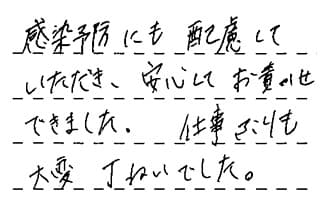 感染予防にも 配慮して
いただき、安心して お責かせ
できました。 仕事さよりも
大変 丁ねいでした。